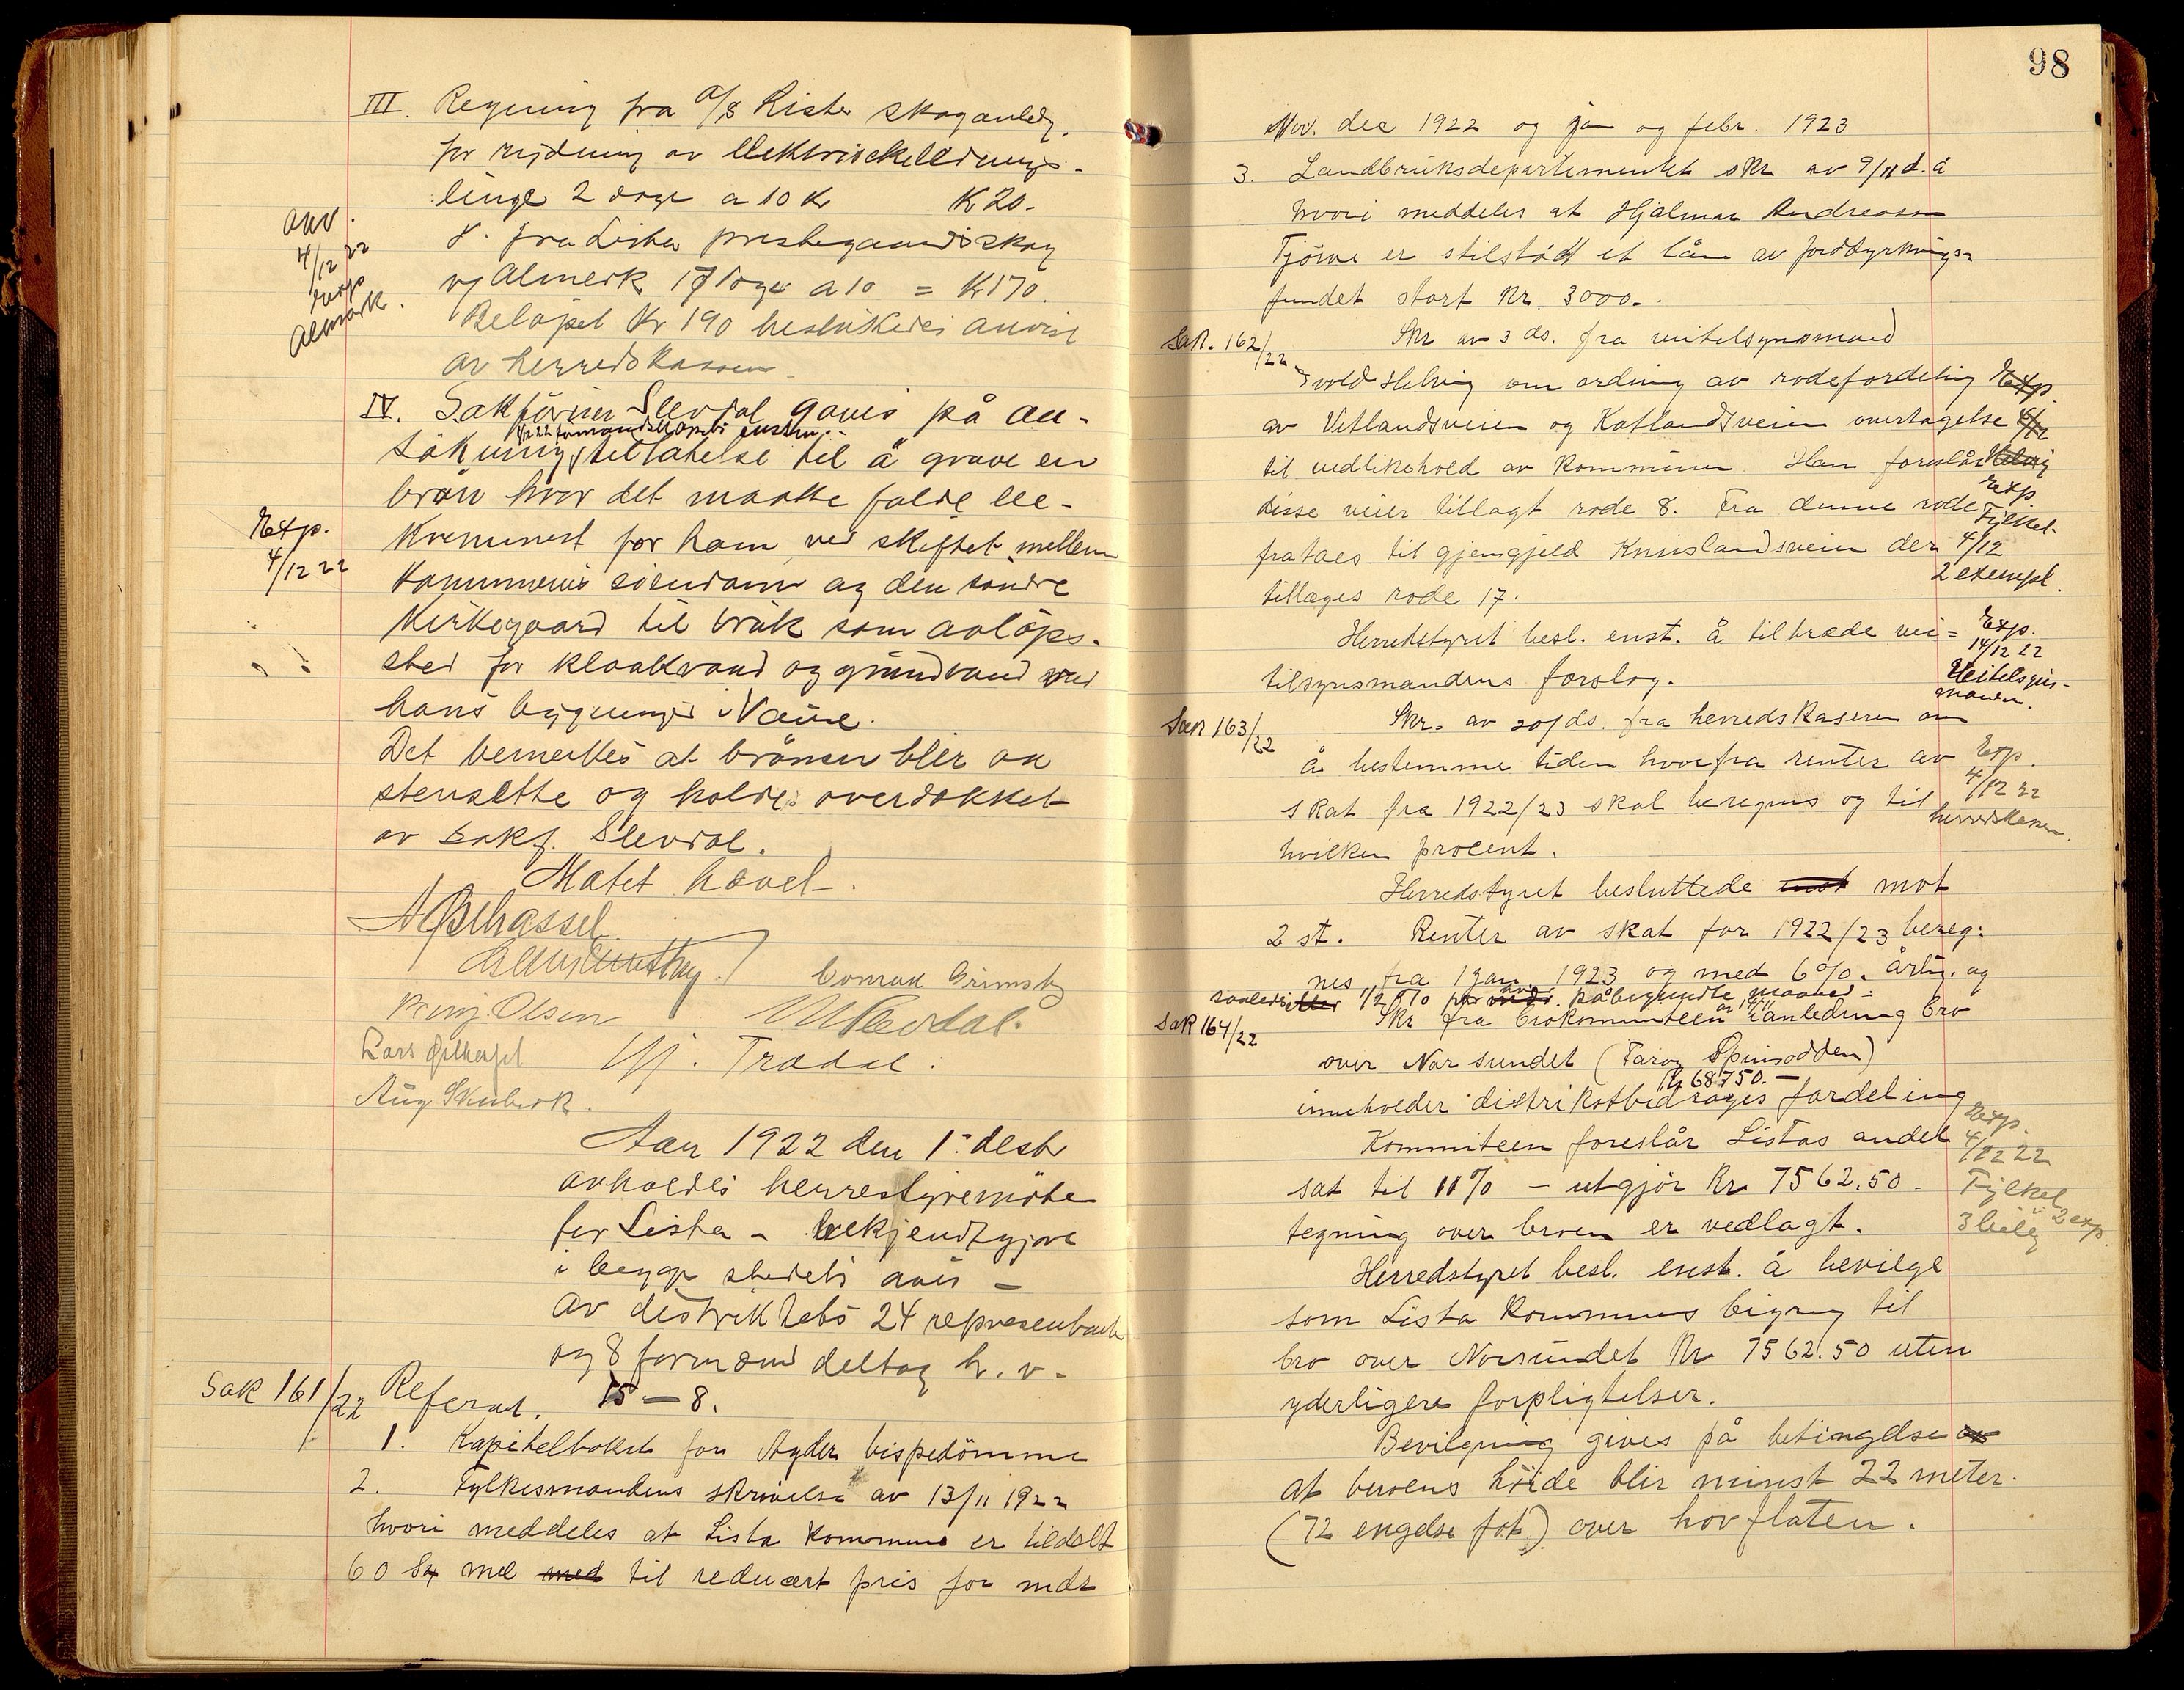 III. Regning fra A/S Lister skoganlæg,
for rydning av elektriskelednings-
linje 2 dage a 10 kr K 20.-
d. fra Lista prestegaards skog
v/ Almerk 17 dage a 10 = Kr 170.
Beløpet Kr 190 besluttedes anvist
av herredskassen.
anv.
4/12 22
Exp
Almark.
IV. Sakfører Slevdal gaves på an-
4/12 22 formandskapets enstem.
søkning tillatelse til å grave en
brøn hvor det maatte falde be-
kvemmest for ham ved skiftet mellem
kommunens eiendom og den søndre
Kirkegaard til bruk som avløps-
sted for kloakvand og grundvand ved
hans bygninger i Vanse.
Exp.
4/12 22
Det bemerkes at brønnen blir at
stensette og holdes overdækket
av sakf. Slevdal.
Møtet hævet.
A B Elhassel
Conrad Grimsby
Benj. Olsen
M Slevdal.
Lars Ørthassel
Hj. Trædal.
Aug Skeibrok.
Aar 1922 den 1. desbr
avholdes herrestyremøte
for Lista - bekjendtgjort
i begge stedets avis -
Av distriktets 24 representant
og 8 formænd deltog h. v.
15 - 8.
Sak 161/22 Referat.
1. Kapitelboken for Agder bispedømme
2. Fylkesmandens skrivelse av 13/11 1922
hvori meddeles at Lista kommune er tildelt
60 sk mel med til redusert pris for mdr
98
Nov. des 1922 og jan og febr. 1923
3. Landbruksdepartementet skr av 9/11 d. å
hvori meddeles at Hjalmar Andreassen
Tjørve er tilstådt et lån av jorddyrknings=
fundet stort Kr. 3000.-.
Sak. 162/22
Skr av 3 ds. fra veitilsynsmand
Tvold Helvig om ordning av rodefordeling
av Vetlandsveien og Katlandsveien overtagelse
til vedlikehold av kommunen Han foreslår
disse veier tillagt rode 8. Fra denne rode
frataes til gjengjeld Knuslandsveien der
tillæges rode 17.
Exp.
4/12
Helvig
Exp
Fylket.
4/12
2 exempl.
Herredstyret besl. enst. å tiltræde vei=
tilsynsmandens forslag.
Exp.
14/12 22
Veitilsyns-
manden.
Sak 163/22
Skr. av 20/ ds. fra herredskaseren om
å bestemme tiden hvorfra renter av
skat fra 1922/23 skal beregnes og til
hvilken procent.
Exp.
4/12 22
herredskassen.
Herredstyret besluttede enst mot
2 st. Renter av skat for 1922/23 bereg:
nes fra 1 jan 1923 og med 6%. årlig. og
saaledes eller 1/2 % for hver mdr. påbegyndte maaned.
Sak 164/22
Skr fra brokommiteen av 14/11 i anledning bro
over Norsundet (Farøy Spinsodden)
Kr 68750.-
inneholder distriktsbidrages fordeling
Kommiteen foreslår Listas andel
sat til 11% - utgjør Kr 7562.50 -
tegning over broen er vedlagt.
Exp.
4/12 22
Fylket
2 exp.
3 bilag
Herredstyret besl. enst. å bevilge
som Lista kommunes bigrag til
bro over Norsundet Kr 7562.50 uten
yderligere forpligtelser.
Bevilgning gives på betingelse av
at broens høide blir minst 22 meter.
(72 engelse fot) over havflaten.